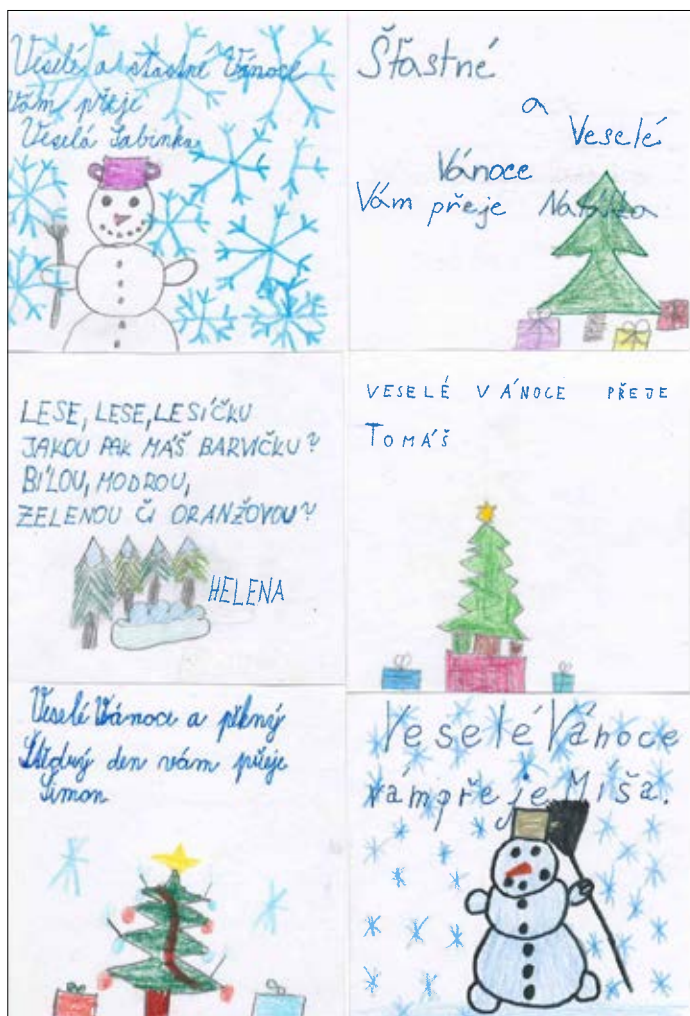 Veselé a šťastné Vánoce
Vám přeje
Veselá Sabinka
Šťastné
a
Veselé
Vánoce
Vám přeje Natálka
LESE, LESE, LESÍČKU
JAKOU PAK MÁŠ BARVIČKU?
BÍLOU, MODROU,
ZELENOU ČI ORANŽOVOU?
HELENA
VESELÉ VÁNOCE PŘEJE
TOMÁŠ
Veselé Vánoce a pěkný
Štědrý den vám přeje
Šimon
Veselé Vánoce
vám přeje Míša.